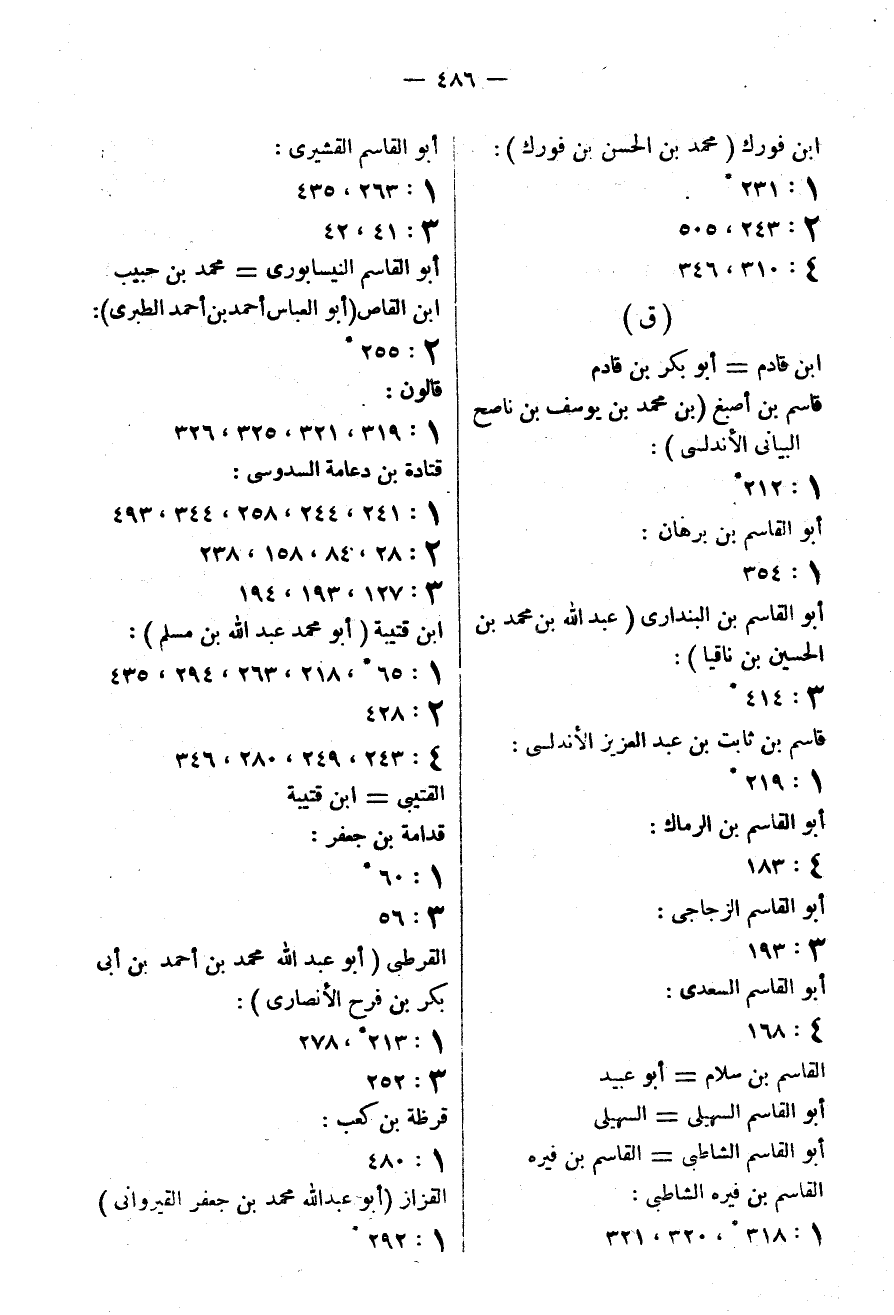 — ٤٨٦ —
ابن فورك ( محمد بن الحسن بن فورك ) :
١ : ٢٣١ *
٢ : ٢٤٣ ، ٥٠٥
٤ : ٣١٠ ، ٣٤٦
( ق )
ابن قادم = أبو بكر بن قادم
قاسم بن أصبغ (بن محمد بن يوسف بن ناصح
البيانى الأندلسى ) :
١ : ٢١٢ *
أبو القاسم بن برهان :
١ : ٣٥٤
أبو القاسم بن البندارى ( عبد الله بن محمد بن
الحسين بن ناقيا ) :
٣ : ٤١٤ *
قاسم بن ثابت بن عبد العزيز الأندلسى :
١ : ٢١٩ *
أبو القاسم بن الرماك :
٤ : ١٨٣
أبو القاسم الزجاجى :
٣ : ١٩٣
أبو القاسم السعدى :
٤ : ١٦٨
القاسم بن سلام = أبو عبيد
أبو القاسم السهيلى = السهيلى
أبو القاسم الشاطبى = القاسم بن فيره
القاسم بن فيره الشاطبى :
١ : ٣١٨ * ، ٣٢٠ ، ٣٢١
أبو القاسم القشيرى :
١ : ٢٦٣ ، ٤٣٥
٣ : ٤١ ، ٤٢
أبو القاسم النيسابورى = محمد بن حبيب
ابن القاص (أبو العباس أحمد بن أحمد الطبرى):
٢ : ٢٥٥ *
قالون :
١ : ٣١٩ ، ٣٢١ ، ٣٢٥ ، ٣٢٦
قتادة بن دعامة السدوسى :
١ : ٢٤١ ، ٢٤٤ ، ٢٥٨ ، ٣٤٤ ، ٤٩٣
٢ : ٢٨ ، ٨٤ ، ١٥٨ ، ٢٣٨
٣ : ١٢٧ ، ١٩٣ ، ١٩٤
ابن قتيبة ( أبو محمد عبد الله بن مسلم ) :
١ : ٦٥ * ، ٢١٨ ، ٢٦٣ ، ٢٩٤ ، ٤٣٥
٢ : ٤٢٨
٤ : ٢٤٣ ، ٢٤٩ ، ٢٨٠ ، ٣٤٦
القتيبى = ابن قتيبة
قدامة بن جعفر :
١ : ٦٠ *
٣ : ٥٦
القرطبى ( أبو عبد الله محمد بن أحمد بن أبى
بكر بن فرح الأنصارى ) :
١ : ٢١٣ * ، ٢٧٨
٣ : ٢٥٢
قرظة بن كعب :
١ : ٤٨٠
القزاز (أبو عبدالله محمد بن جعفر القيروانى )
١ : ٢٩٢ *